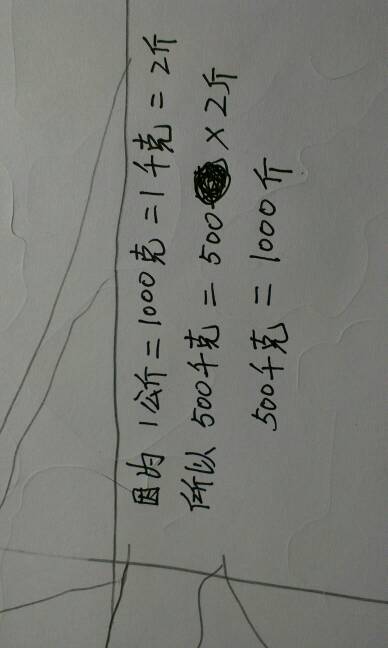 因为 1公斤=1000克=1千克=2斤
所以 500千克=500×2斤
500千克=1000斤